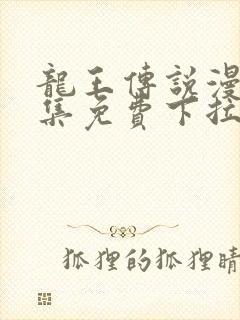 龍王傳說漫
集免費下拉
狐狸的狐狸晴